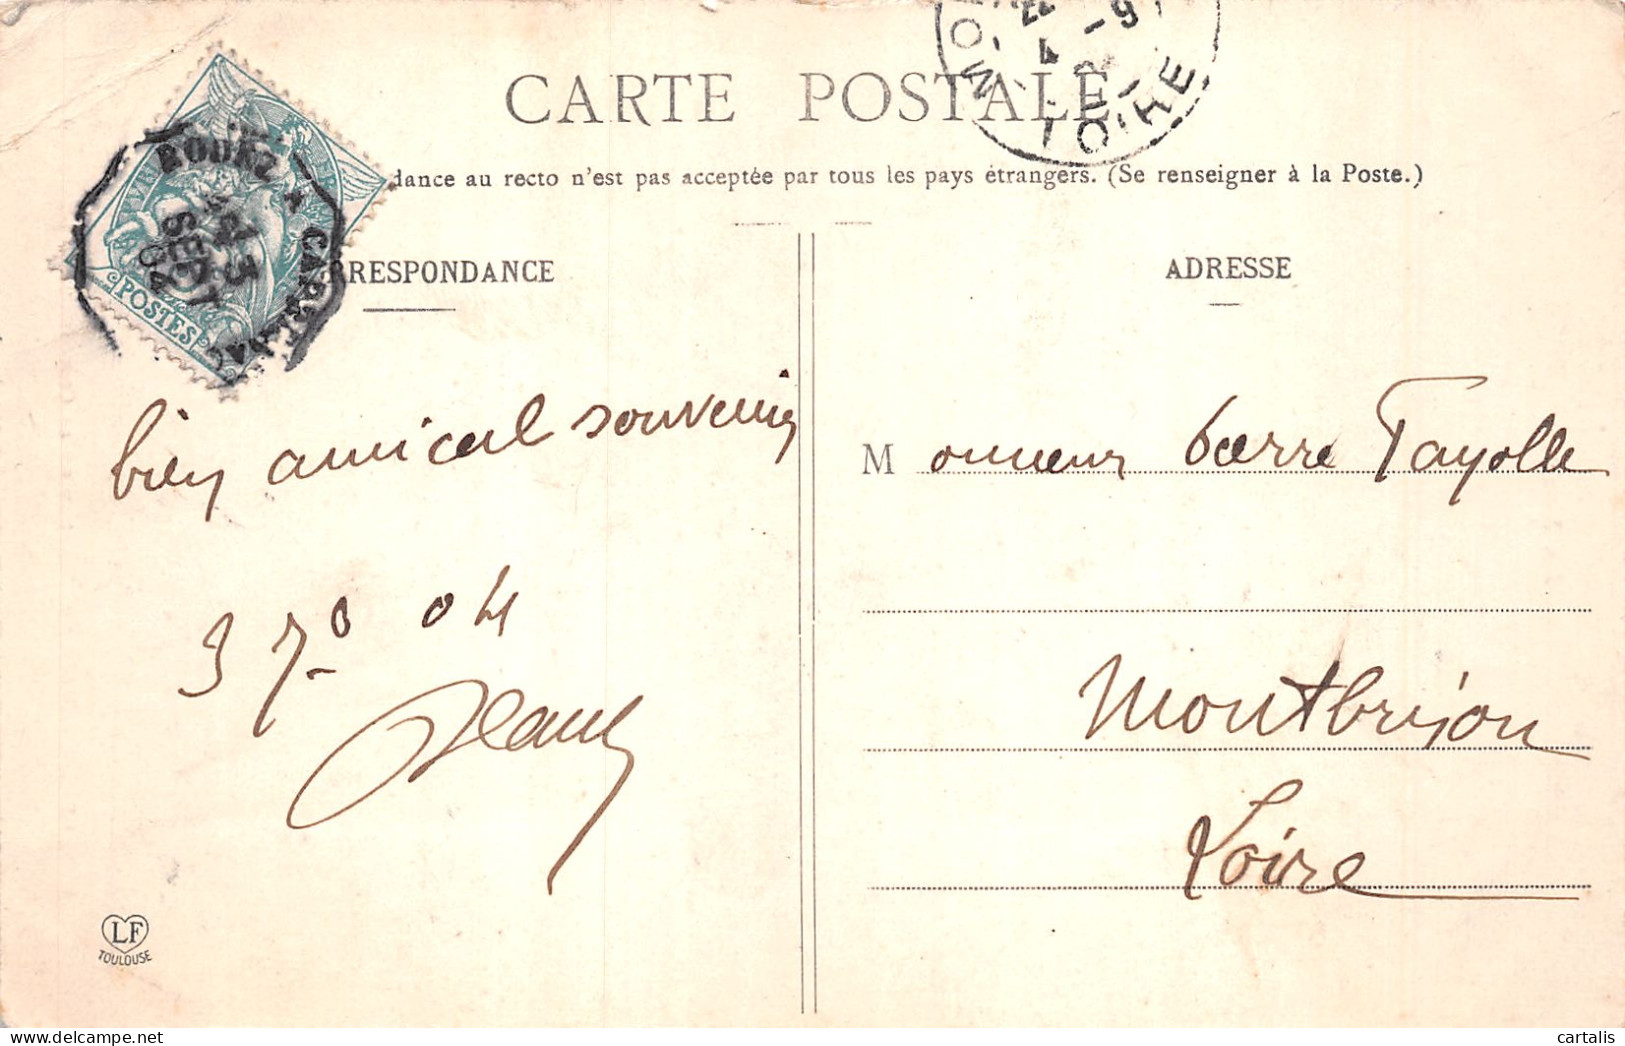 CARTE POSTALE
dance au recto n'est pas acceptée par tous les pays étrangers. (Se renseigner à la Poste.)
RESPONDANCE
ADRESSE
POSTES
3
SEPT
04
LOIRE
bien amical souvenir
3 7º 04
Jean
Monsieur Pierre Fayolle
Montbrison
Loire
LF
TOULOUSE
www.delcampe.net
cartalis